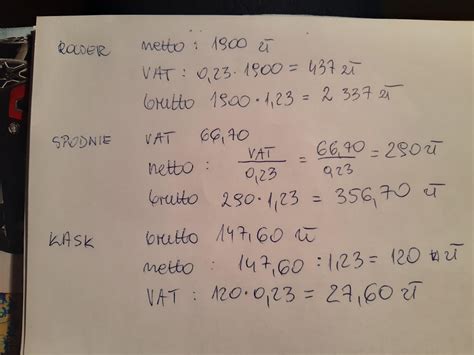 ROWER netto : 1900 zł
VAT : 0,23 · 1900 = 437 zł
brutto 1900 · 1,23 = 2 337 zł
SPODNIE VAT 66,70
netto : VAT/0,23 = 66,70/0,23 = 290 zł
brutto 290 · 1,23 = 356,70 zł
KASK brutto 147,60 zł
netto : 147,60 : 1,23 = 120 zł
VAT : 120 · 0,23 = 27,60 zł